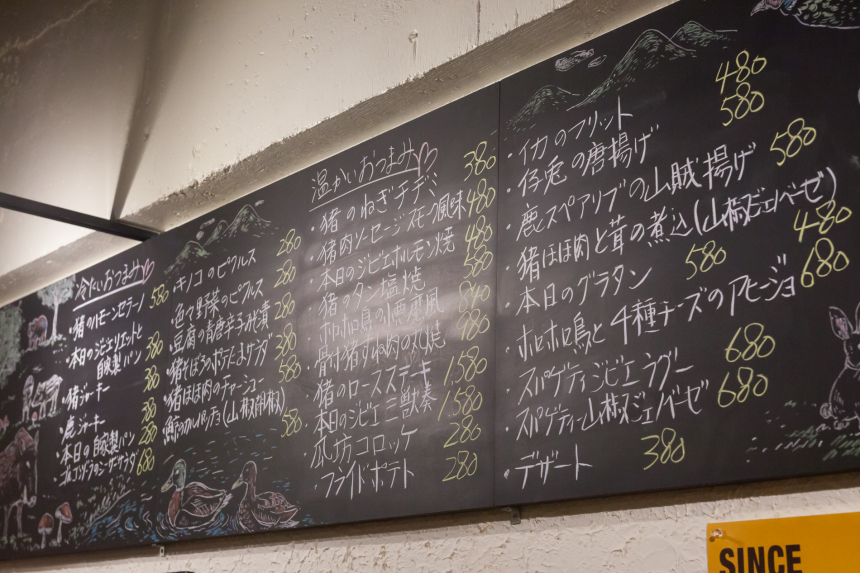 冷たいおつまみ
・猪のハモンセラーノ 580
・本日のジビエリエットと
自家製パン 380
・猪ジャーキー 380
・鹿ジャーキー 380
・本日の自家製パン 280
・ゴルゴンゾーラのシーザーサラダ 680
・キノコのピクルス 280
・色々野菜のピクルス 280
・豆腐の青唐辛子みそ漬 280
・猪そぼろのポテたまサラダ 380
・猪ほほ肉のチャーシュー 580
カルパッチョ(山椒 580
温かいおつまみ
・猪のねぎチヂミ 380
・猪肉ソーセージスモーク風味 480
・本日のジビエホルモン焼 480
・猪のタン塩焼 580
・ホロホロ鳥の小悪魔風
・骨付猪すね肉の丸焼
・猪のロースステーキ 1,580
・本日のジビエ三獣奏 1,580
・瓜坊コロッケ 280
・フライドポテト 280
・イカのフリット 480
・仔兎の唐揚げ 580
・鹿スペアリブの山賊揚げ 580
・猪ほほ肉と茸の煮込(山椒ジェノベーゼ)
・本日のグラタン 580 480
・ホロホロ鳥と4種チーズのアヒージョ 680
・スパゲティジビエラグー 680
・スパゲティ山椒ジェノベーゼ 680
・デザート 380
SINCE